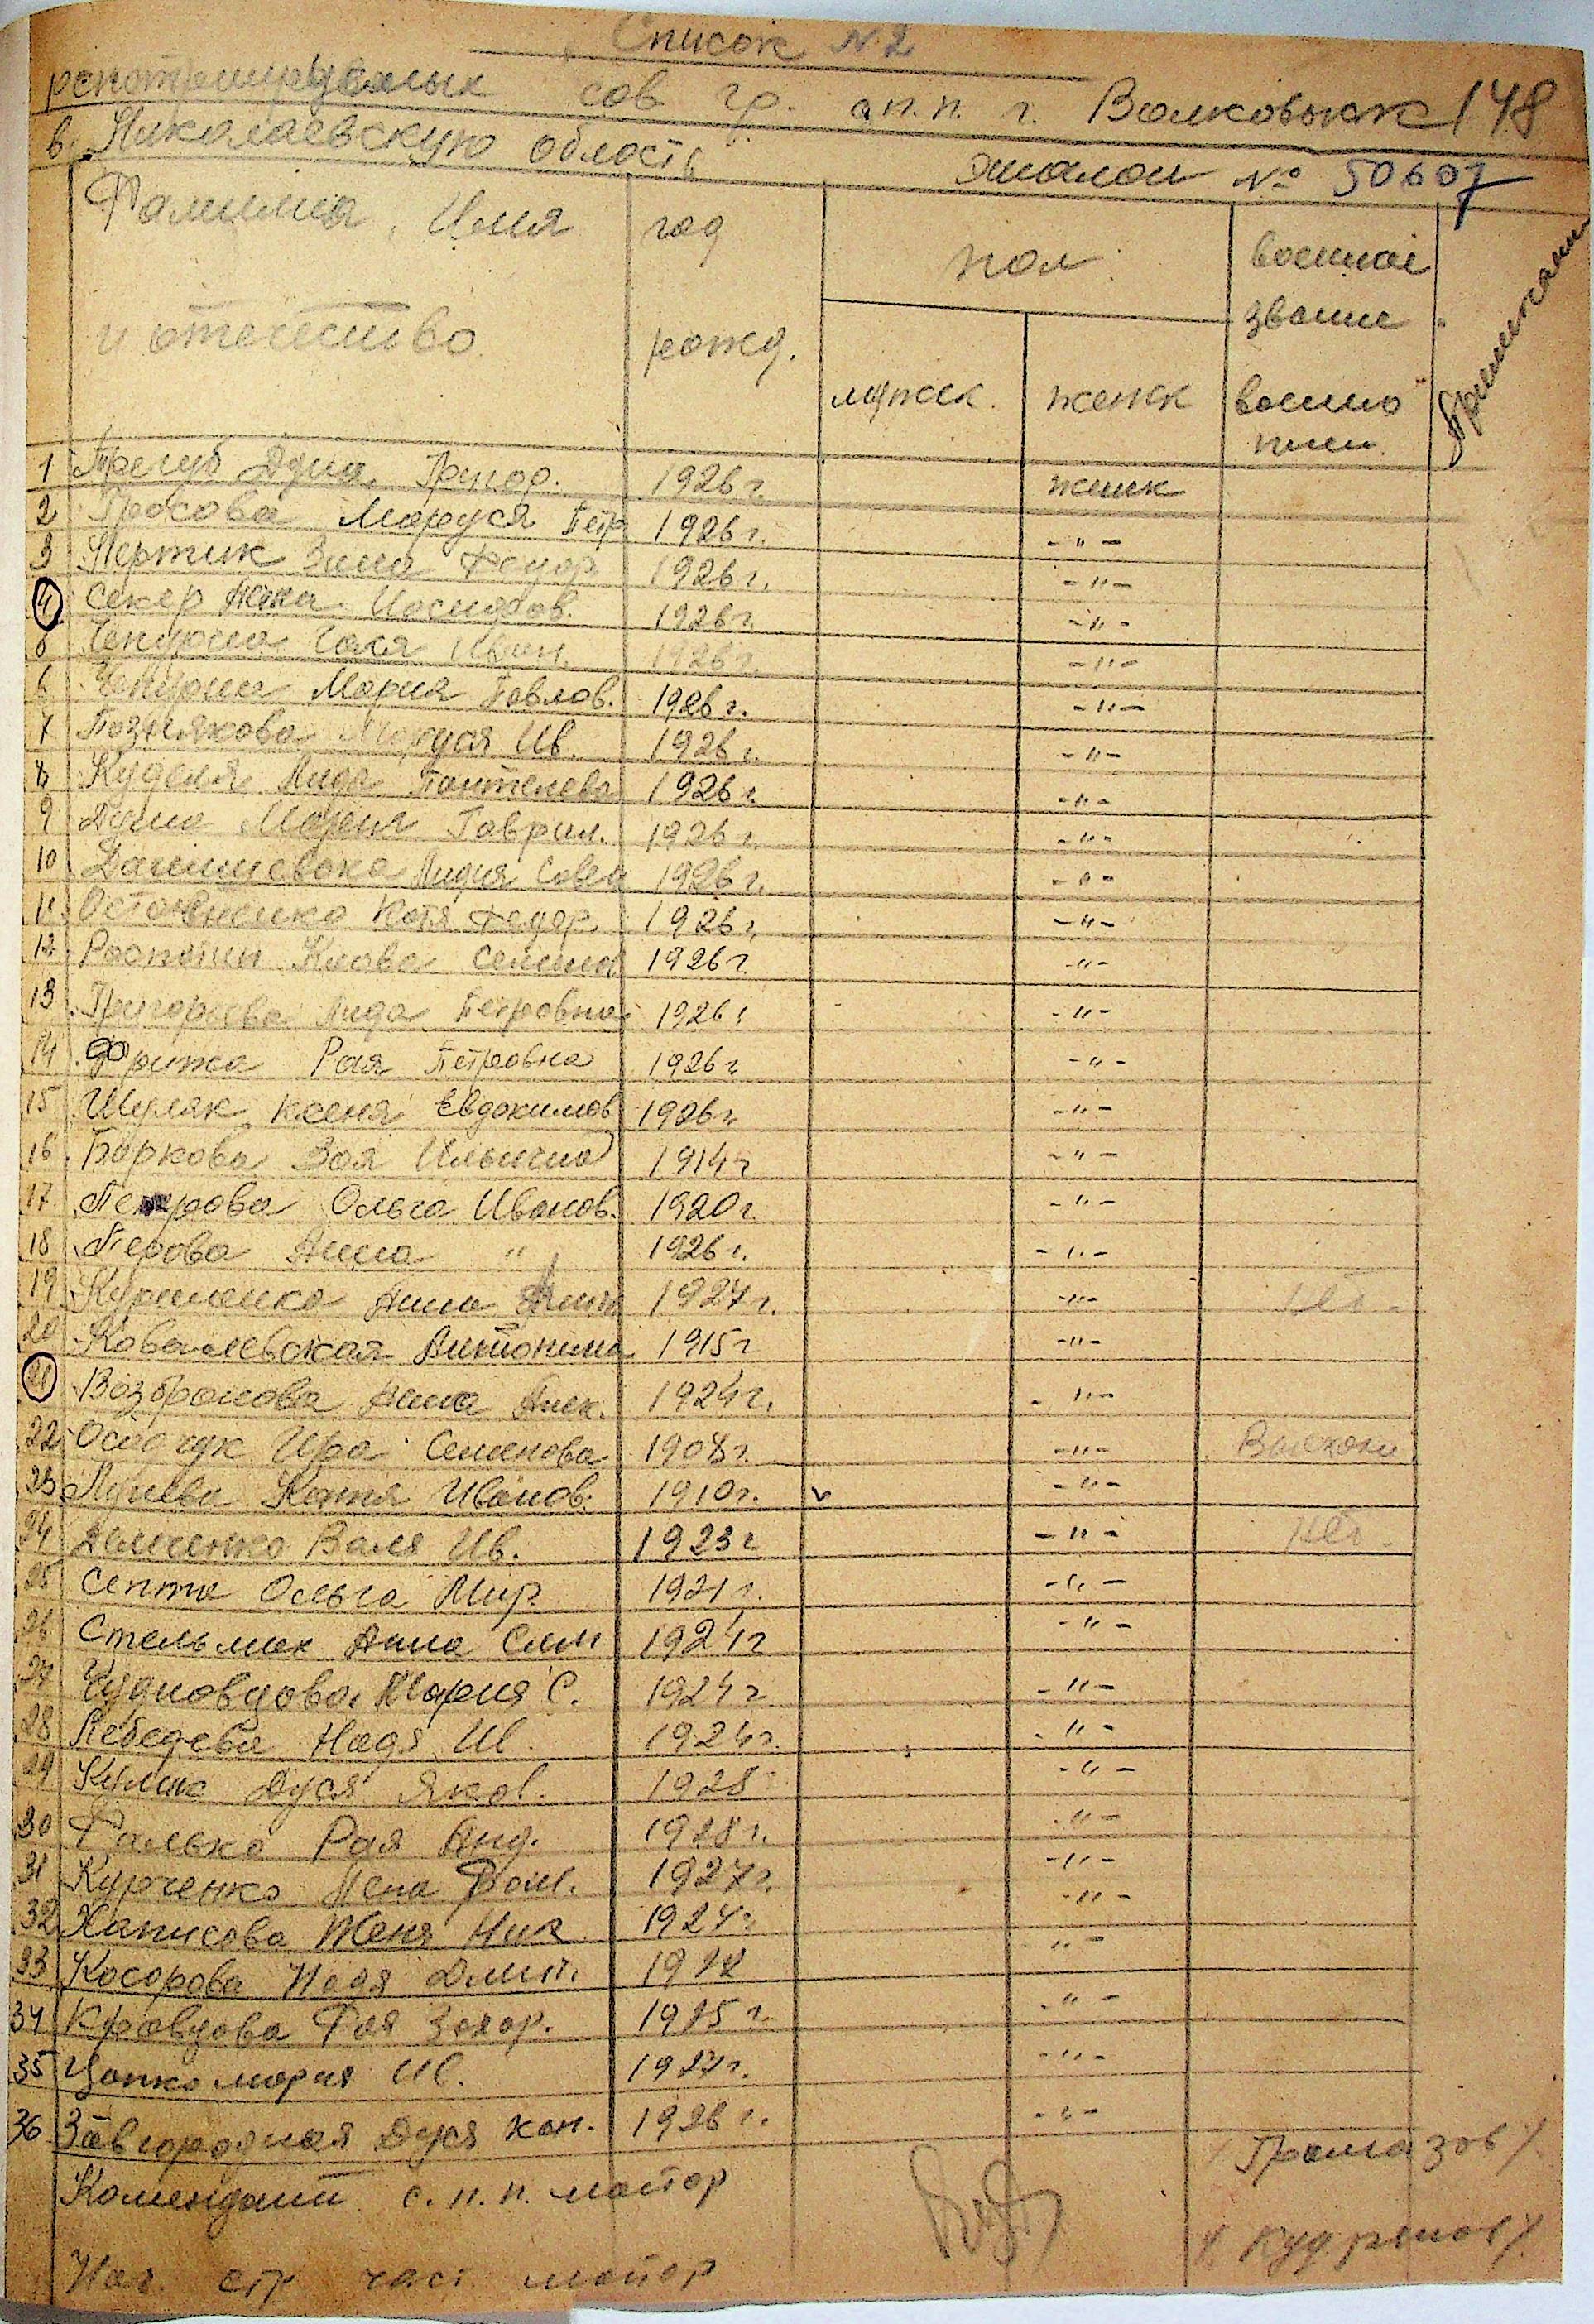 Список № 2
репотриируемых сов гр. с п.п. г. Волковыск 148
в. Николаевскую область Эшалон № 50607
Фамилия, Имя и отчество год рожд. пол мужск. женск военное звание военно плен. Примечание
1 Трегуб Дуна Григор. 1926 г. женск
2 Грасова Маруся Петр. 1926 г. -"-
3 Пертик Зина Федор. 1926 г. -"-
4 Секер Нина Иосифов. 1926 г. -"-
5 Чепурна Галя Иван. 1926 г. -"-
6 Чепурна Мария Павлов. 1926 г. -"-
7 Познякова Маруся Ив. 1926 г. -"-
8 Куделя Лида Пантелева 1926 г. -"-
9 Дума Мария Гаврил. 1926 г. -"-
10 Данишевска Лидия Савел 1926 г. -"-
11 Катя Федор. 1926 г. -"-
12 Распопин Клава Семенов 1926 г. -"-
13 Григорьева Лида Петровна 1926 г -"-
14 Фрижа Рая Петровна 1926 г -"-
15 Шуляк Ксеня Евдокимов 1926 г. -"-
16 Баркова Зоя Ильинична 1914 г -"-
17 Ольга Иванов. 1920 г. -"-
18 Перова Анна " 1926 г. -"-
19 Куриленко Анна 1927 г. -"- нет.
20 Ковалевская Антонина 1915 г -"-
21 Возбранова Нина Алек. 1924 г. -"-
22 Осадчук Ира Семенова 1908 г. -"-
23 Лунева Катя Иванов. 1910 г. v -"-
24 Демченко Валя Ив. 1923 г -"- нет.
25 Септа Ольга Мир. 1921 г. -"-
26 Стельмах Анна Сем 1924 г -"-
27 Чудновцова Мария С. 1924 г. -"-
28 Лебедева Надя Ив. 1924 г. -"-
29 Кулик Дуся Яков. 1928 -"-
30 Галько Рая Анд. 1928 г. -"-
31 Курченко Лена Ром. 1927 г. -"-
32 Хаписова Женя Ник 1924 г -"-
33 Косорова Надя Дмит. -"-
34 Кравцова Рая Захар. 1925 г. -"-
35 Цопко мария Ив. 1927 г. -"-
36 Завгородная Дуся Кон. 1926 г. -"-
Комендант с.п.п. майор /Громазов/.
Нач. стр част майор /Кудряшов/.